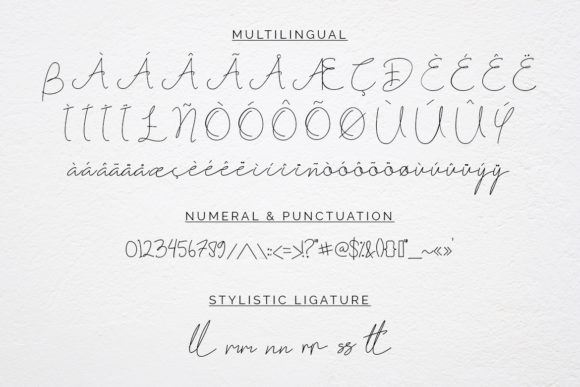 MULTILINGUAL
β À Á Â Ã Å Æ Ç Đ È É Ê Ë
Ì Í Î Ï Ł Ñ Ò Ó Ô Õ Ø Ù Ú Û Ý
àáâãäåæçèéêëìíîïñòóôõöøùúûüýÿ
NUMERAL & PUNCTUATION
0123456789/\:<=>!?"#@$%&(){}[]*_~«»'
STYLISTIC LIGATURE
ll mm nn rr ss tt